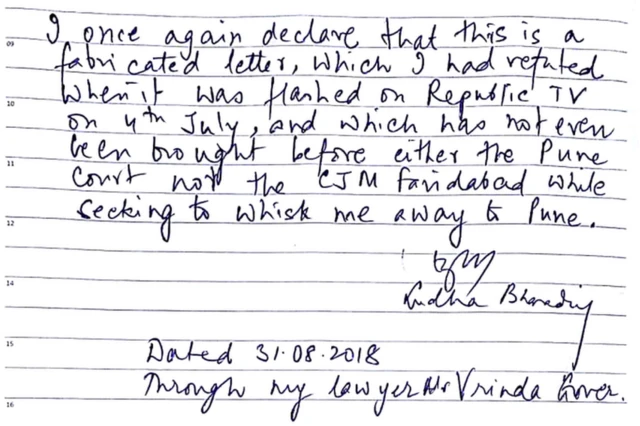 I once again declare that this is a
09
fabricated letter, which I had refuted
when it was flashed on Republic TV
10
on 4th July, and which has not even
been brought before either the Pune
11
court nor the CJM faridabad while
seeking to whisk me away to Pune.
12
14
Sudha Bharadwaj
15
Dated 31.08.2018
Through my lawyer Ms Vrinda Grover.
16